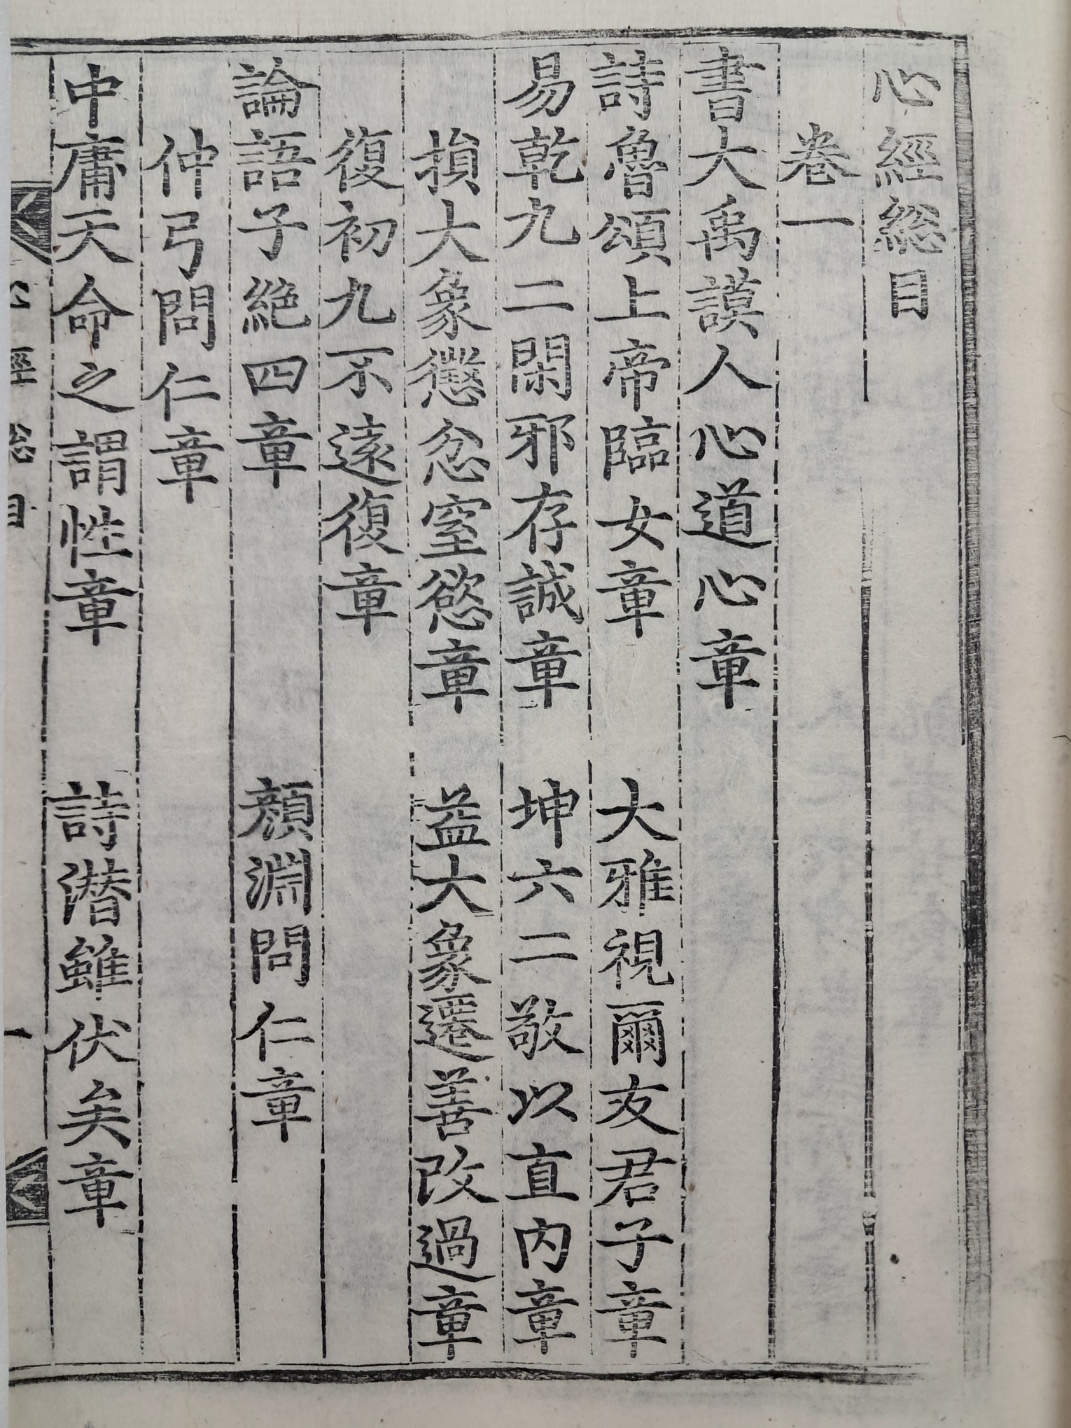 心經総目
卷一
書大禹謨人心道心章
詩魯頌上帝臨女章　大雅視爾友君子章
易乾九二閑邪存誠章　坤六二敬以直內章
損大象懲忿窒慾章　益大象遷善改過章
復初九不遠復章
論語子絶四章　顏淵問仁章
仲弓問仁章
中庸天命之謂性章　詩潛雖伏矣章
心經総目　一